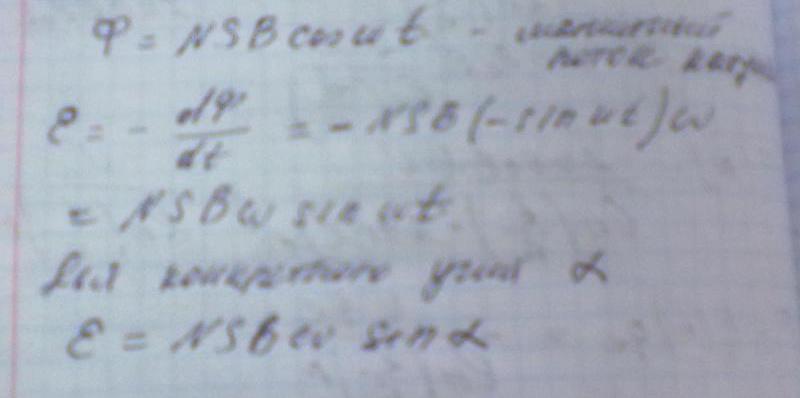 Φ = NSB cos ωt - магнитный
поток катуш
ℰ = - dΦ/dt = - NSB (- sin ωt) ω
= NSBω sin ωt
Для конкретного угла α
ℰ = NSBω sin α